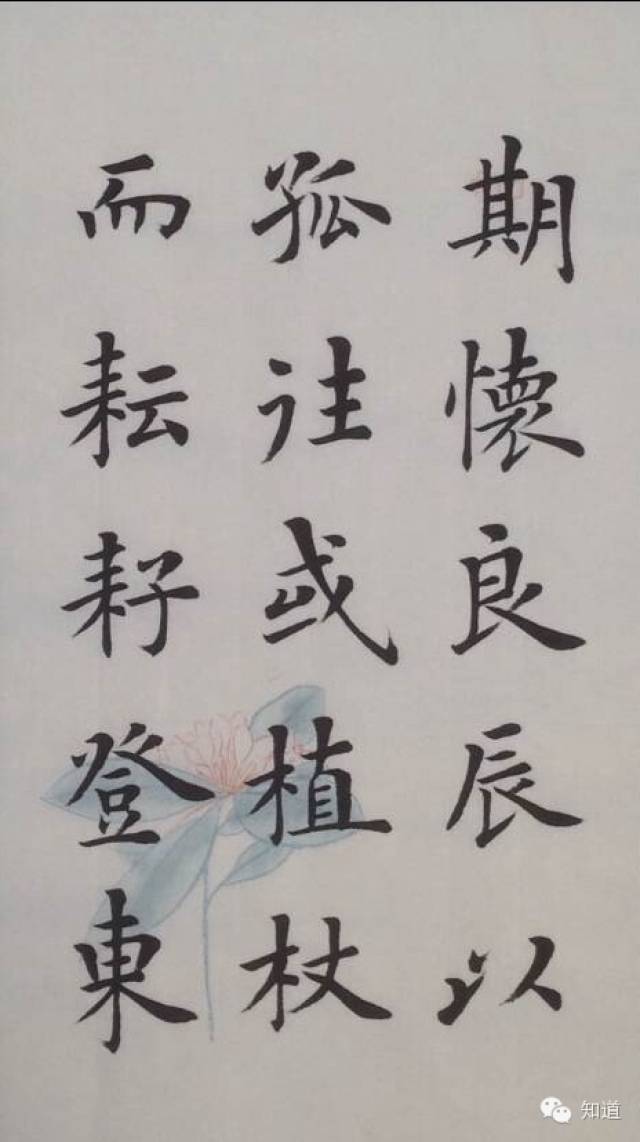 期懷良辰以
孤往或植杖
而耘耔登東
知道